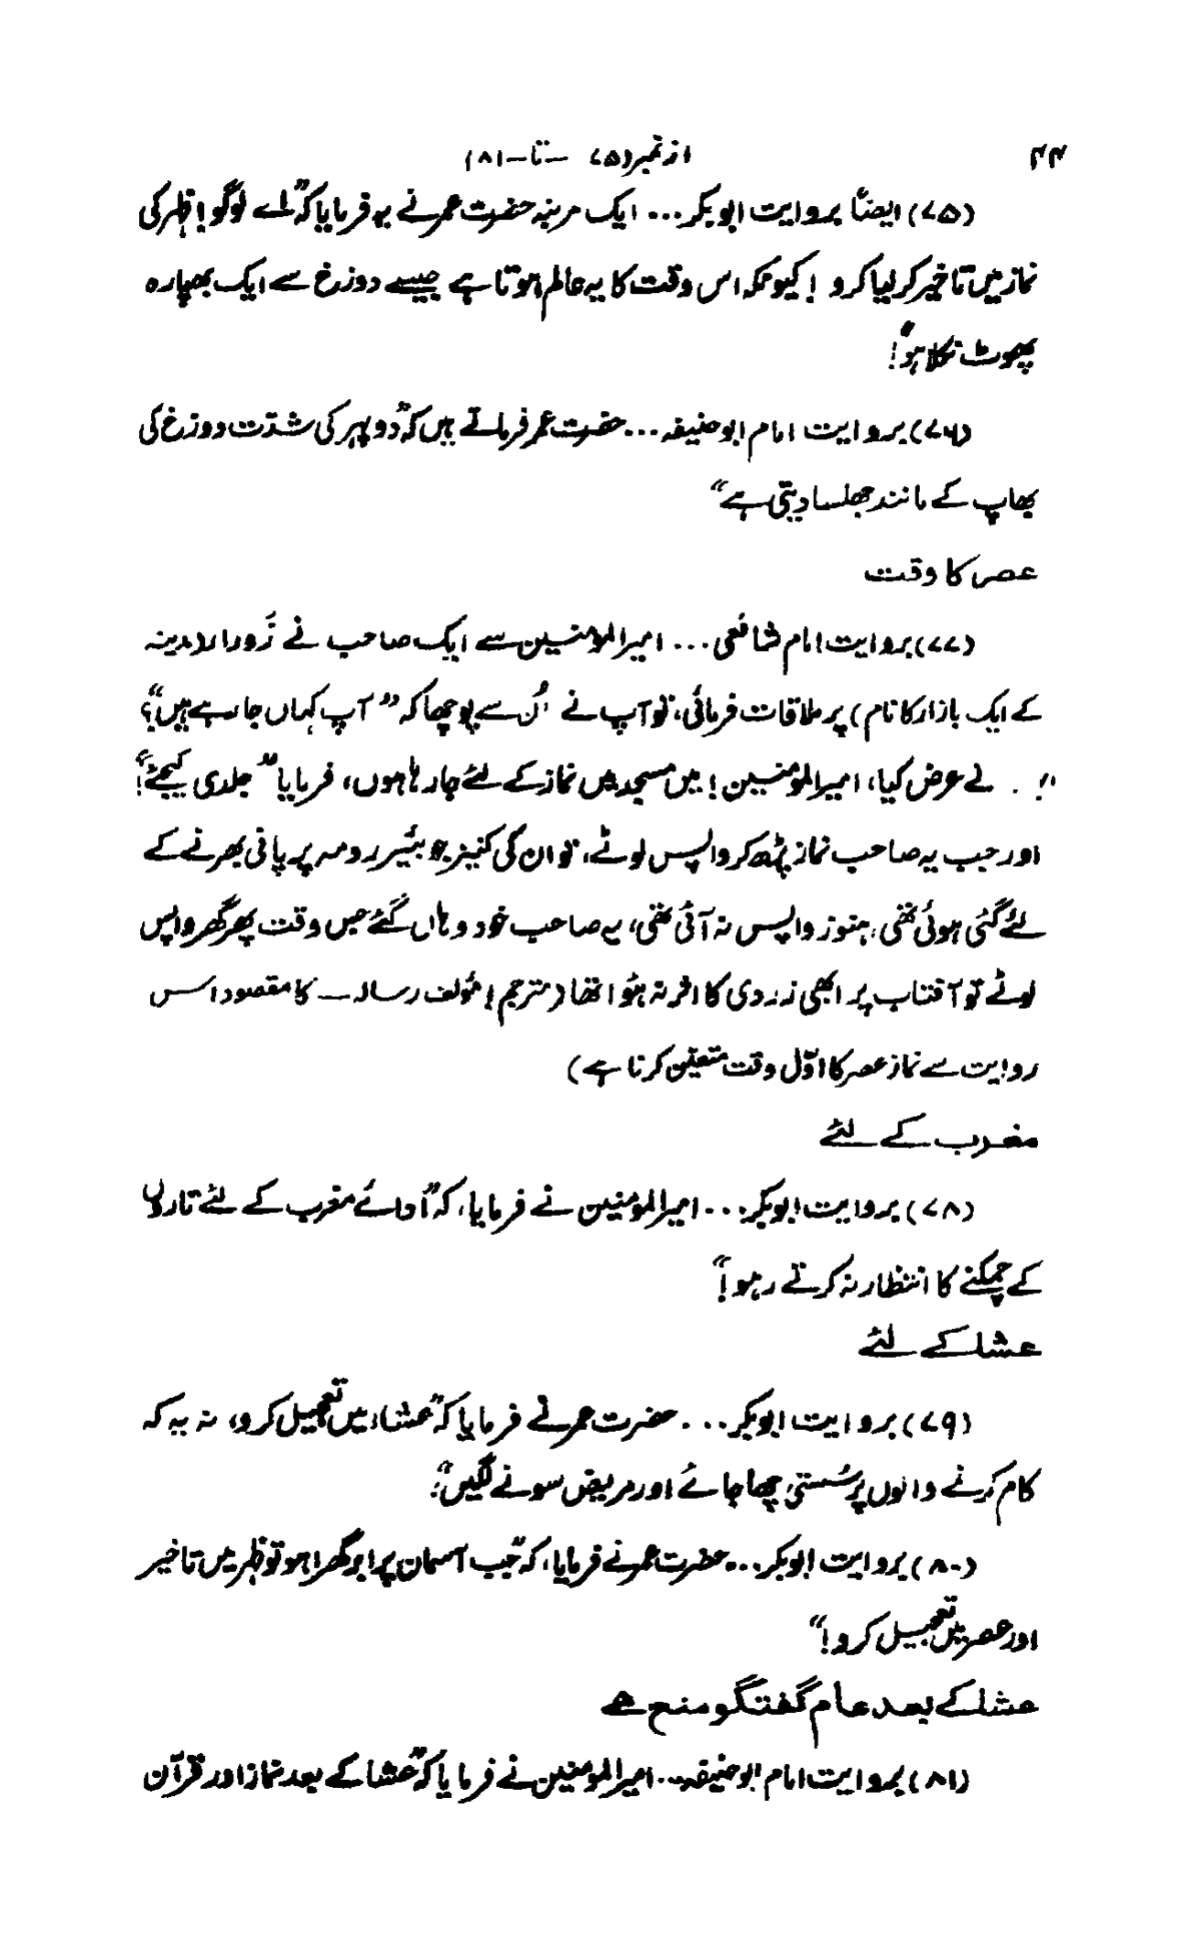 ۴۴ از نمبر (۷۵ – تا – ۸۱)
(۷۵) ایضاً بروایت ابوبکر ... ایک مرتبہ حضرت عمر نے یہ فرمایا کہ ”اے لوگو! ظہر کی
نماز میں تاخیر کر لیا کرو! کیونکہ اس وقت کا یہ عالم ہوتا ہے جیسے دوزخ سے ایک بھپارہ
پھوٹ نکلا ہو“!
(۷۶) بروایت امام ابوحنیفہ ... حضرت عمر فرماتے ہیں کہ ”دوپہر کی شدّت دوزخ کی
بھاپ کے مانند جھلسا دیتی ہے“
عصر کا وقت
(۷۷) بروایت امام شافعی ... امیرالمؤمنین سے ایک صاحب نے زَورا (مدینہ
کے ایک بازار کا نام) پر ملاقات فرمائی، تو آپ نے اُن سے پوچھا کہ ”آپ کہاں جا رہے ہیں“؟
نے عرض کیا، امیرالمؤمنین! میں مسجد میں نماز کے لئے جا رہا ہوں، فرمایا ”جلدی کیجئے“!
اور جب یہ صاحب نماز پڑھ کر واپس لوٹے، تو ان کی کنیز جو بئیر رومہ پر پانی بھرنے کے
لئے گئی ہوئی تھی، ہنوز واپس نہ آئی تھی، یہ صاحب خود وہاں گئے جس وقت پھر گھر واپس
لوٹے تو آفتاب پر ابھی زردی کا اثر نہ ہُوا تھا (مترجم! مؤلف رسالہ – کا مقصود اس
روایت سے نماز عصر کا اوّل وقت متعیّن کرنا ہے)
مغرب کے لئے
(۷۸) بروایت ابوبکر ... امیرالمؤمنین نے فرمایا، کہ ”ادائے مغرب کے لئے تاروں
کے چمکنے کا انتظار نہ کرتے رہو!“
عشا کے لئے
(۷۹) بروایت ابوبکر ... حضرت عمر نے فرمایا کہ ”عشاء میں تعجیل کرو، نہ یہ کہ
کام کرنے والوں پر سُستی چھا جائے اور مریض سونے لگیں“۔
(۸۰) بروایت ابوبکر ... حضرت عمر نے فرمایا، کہ ”جب آسمان پر ابر گھرا ہو تو ظہر میں تاخیر
اور عصر میں تعجیل کرو!“
عشا کے بعد عام گفتگو منع ہے
(۸۱) بروایت امام ابوحنیفہ ... امیرالمؤمنین نے فرمایا کہ ”عشا کے بعد نماز اور قرآن